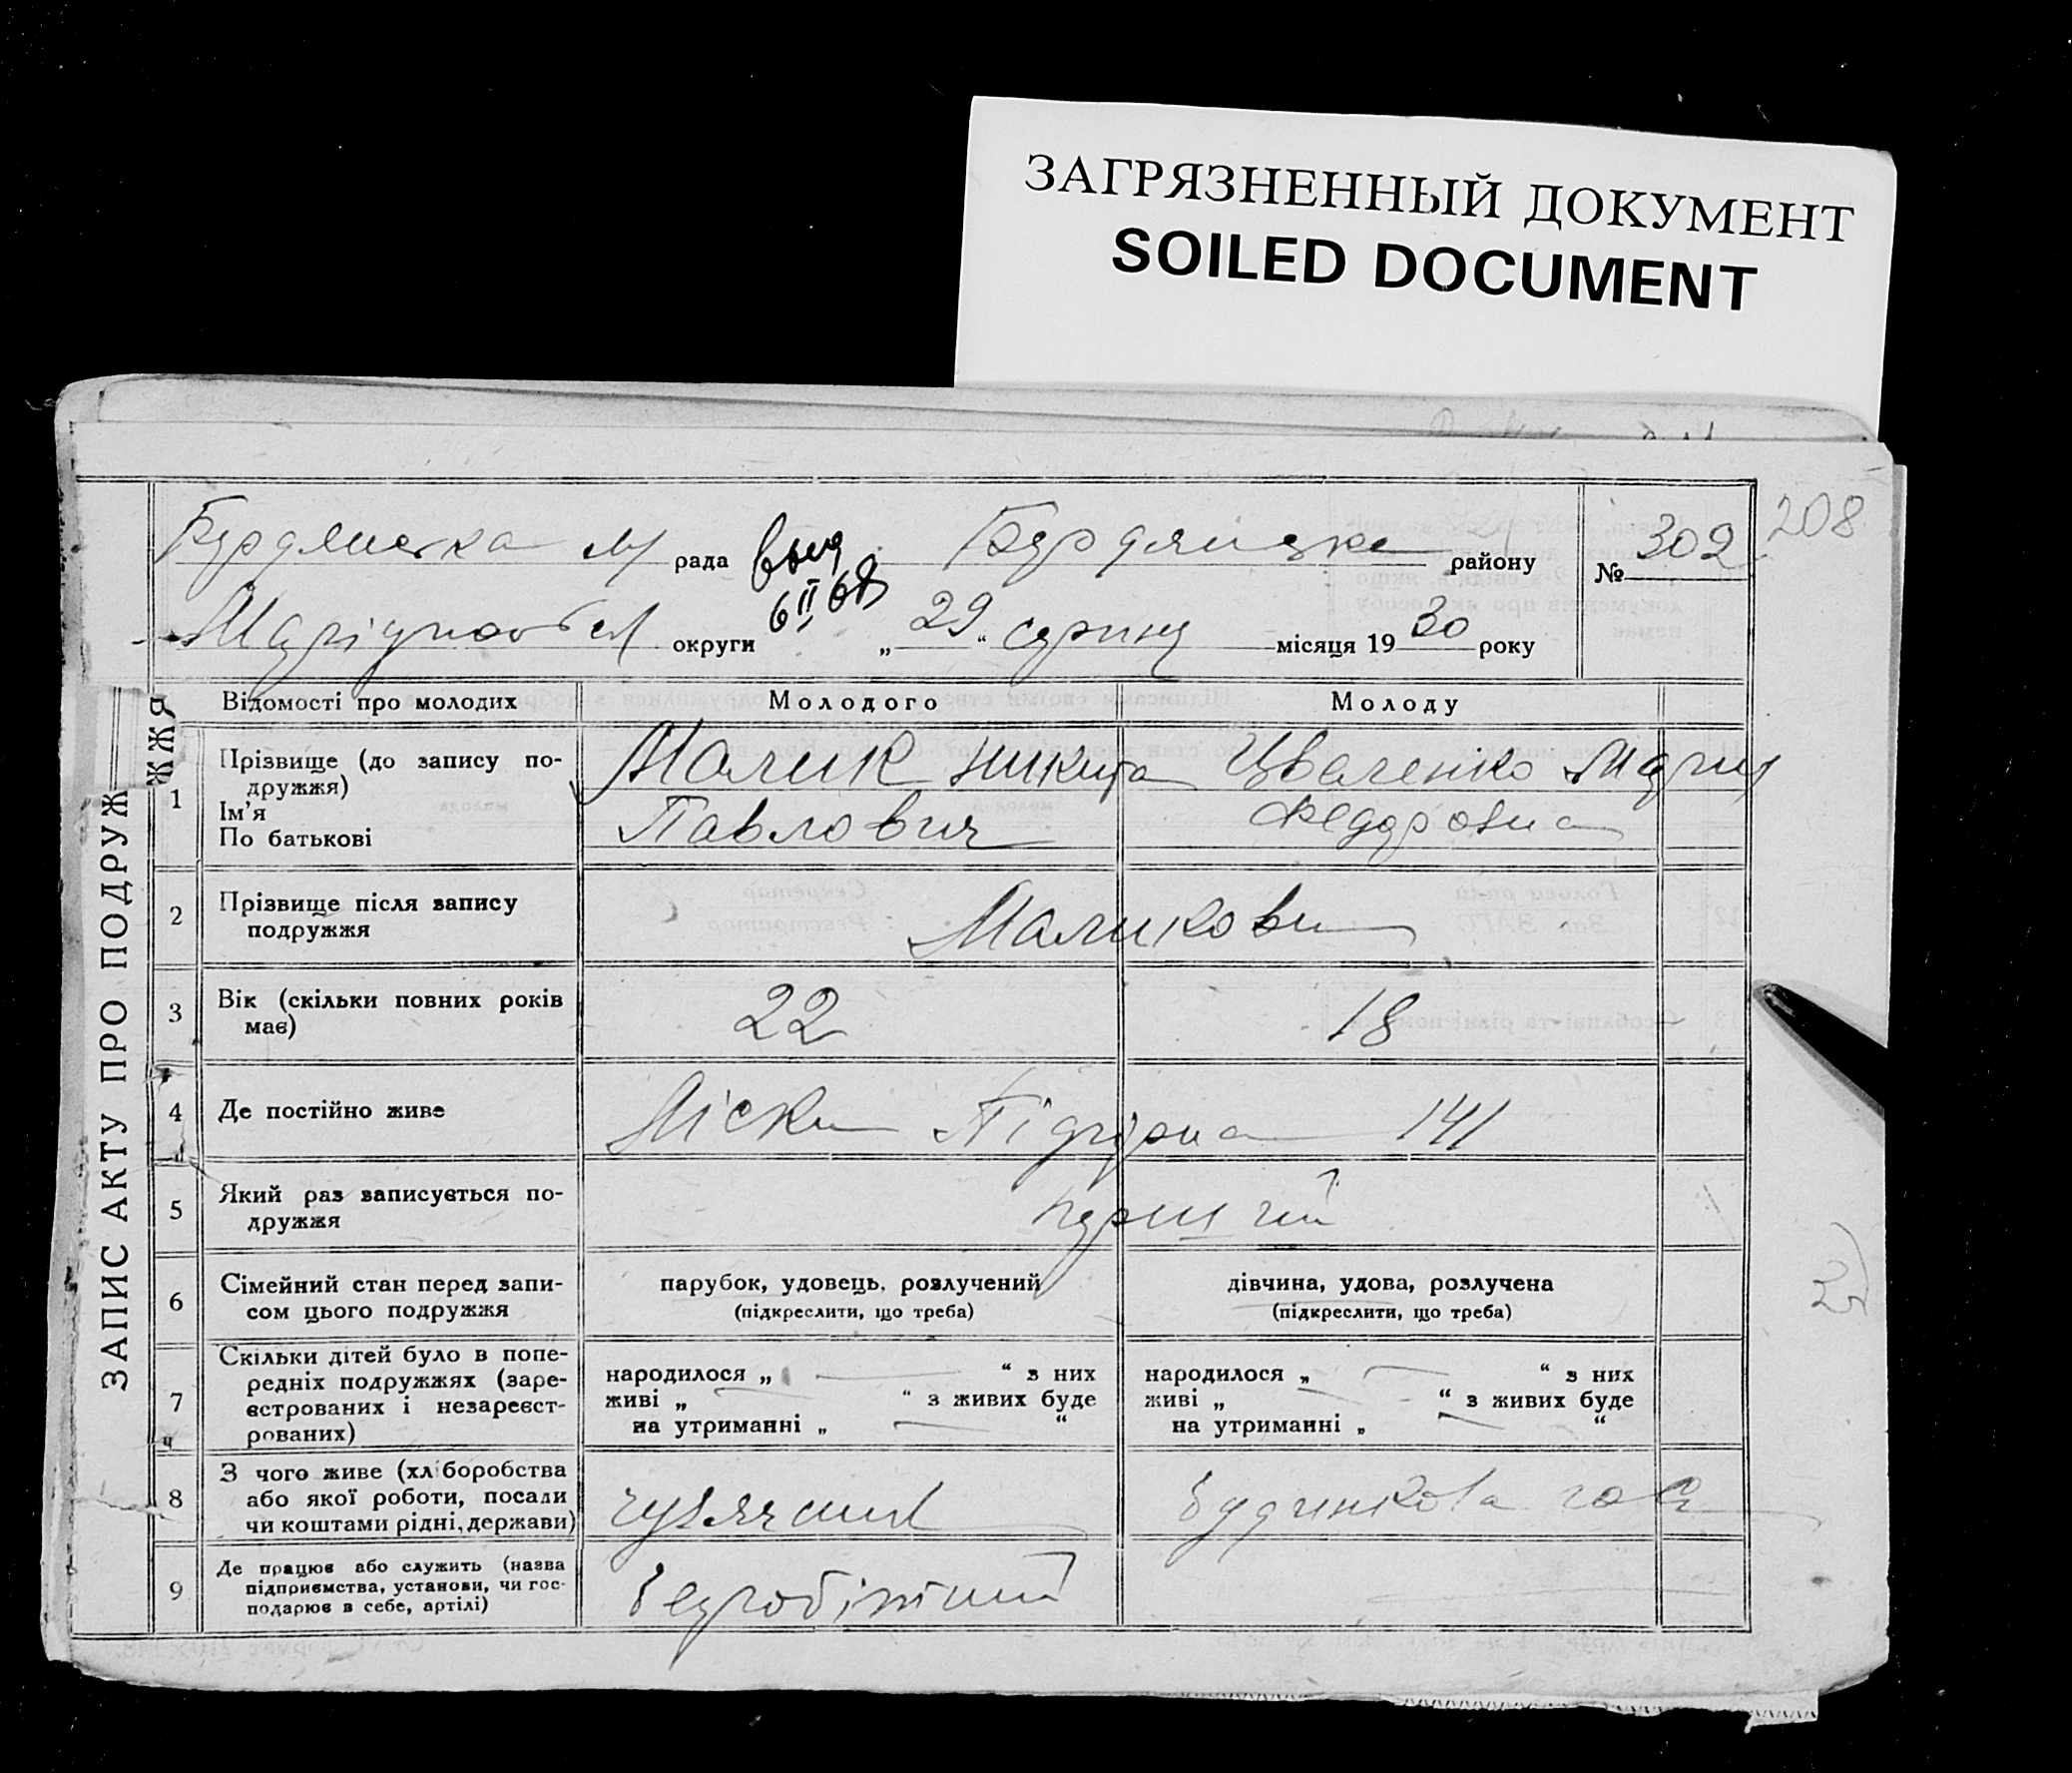 ЗАГРЯЗНЕННЫЙ ДОКУМЕНТ
SOILED DOCUMENT
208
рада выд. района Бердянське району № 302
6 II 68
округи „29“ серпня місяця 1930 року
ЗАПИС АКТУ ПРО ПОДРУЖЖЯ
Відомості про молодих Молодого Молоду
1 Прізвище (до запису по-
дружжя)
Ім'я
По батькові
Малик Никита
Павлович
Марія
Федоровна
2 Прізвище після запису
подружжя
Маликови
3 Вік (скільки повних років
має)
22 18
4 Де постійно живе
Ліски Підгірна 141
5 Який раз записується по-
дружжя
перший
6 Сімейний стан перед запи-
сом цього подружжя
парубок, удовець, розлучений
(підкреслити, що треба)
дівчина, удова, розлучена
(підкреслити, що треба)
7 Скільки дітей було в попе-
редніх подружжях (заре-
єстрованих і незареєст-
рованих)
народилося „ — “ з них
живі „ — “ з живих буде
на утриманні „ — “
народилося „ — “ з них
живі „ — “ з живих буде
на утриманні „ — “
8 З чого живе (хліборобства
або якої роботи, посади
чи коштами рідні, держави)
будинкова гос
9 Де працює або служить (назва
підприємства, установи, чи гос-
подарює в себе, артілі)
безробітний